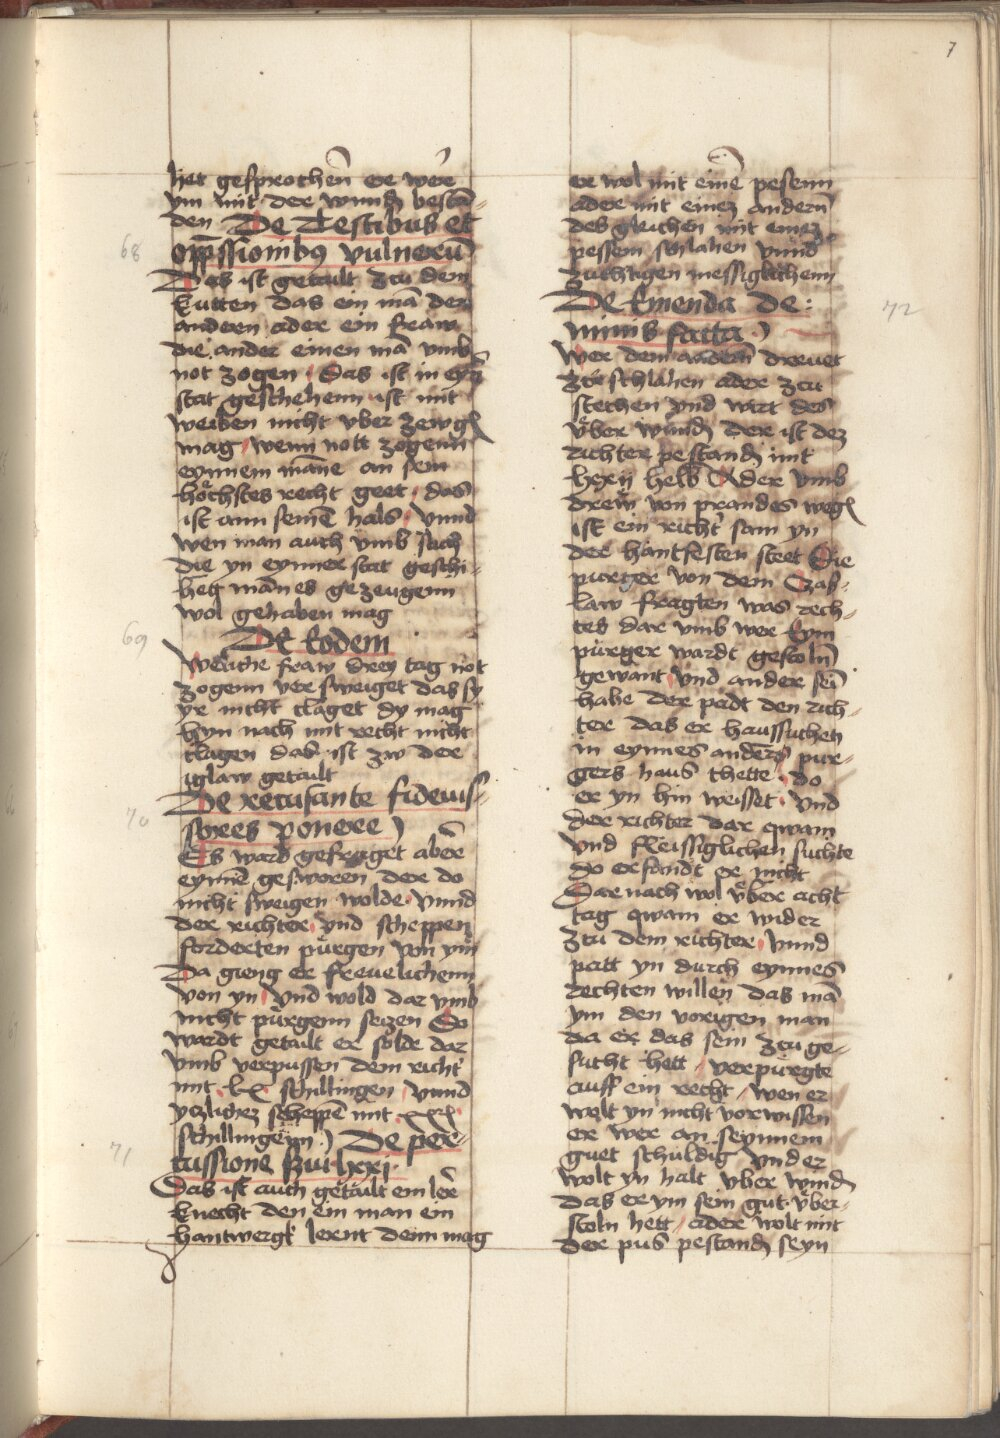 7
het gesprochen̄ er wer̄
ym mit der wund bestā-
den De Testibus et
68
opp̄ssionibꝫ vulnerū
Das ist getailt zcu dem
kutten das ein mā den
andern ader ein fraw
die ander einen mā vmb
not zogen Das ist in eyn̄
stat geschehenn ist mit
weiben nicht vber zewgē
mag wenn nott zogenn
eynnem māne an sein
hochstes recht geet das
ist ann seinē hals vnnd
wen man auch vmb sach
die yn eynner stat geschi-
het mān es gezeugenn
wol gehaben mag
69
De Eodem
Weliche fraw drey tag not
zogenn versweiget das sy
yr nicht claget dy mag
hyn nach mit recht nicht
clagen das ist zw der
iglaw getailt
De recusante fideiuss-
70
sores ponere
Es ward gefraget aber̄
eynnē gesworen der do
nicht sweigen wolde vnnd
der richter vnd scheppen
forderten pürgen von ym
Da gieng er freuelichenn
von yn vnd wold dar vmb
nicht pürgenn seczen Do
wardt getailt er solde dar
vmb verpussen dem richt̄
mit lx schillingen vnnd
yczlichez scheppē mit xxx
schillingenn De per-
71
cussione sui lxxj
Das ist auch getailt ein ler̄
knecht den ein man ein
hantwergk lernt denn mag
er wol mit einē pesenn
ader mit einez andern̄
des gleichen mit einez
pessem schlahen vnnd
zuchtigen messiglichenn
De Emenda de
72
nimis facta
Wer dem andern̄ drewet
zcu schlahen ader zcu
stechen vnd wirt des
vber wund der ist dez
richter pestand mit
lxxij helb Ader vmb
drew von prandes wegē
ist ein richt̄ sam yn
der hantfesten steet Die
purger von dem Czas-
law fragten was rech-
tes dar vmb wer Eym
pürger wardt gestoln̄
gewant vnd ander sei
habe der padt den rich-
ter das er haussuchen
in eynnes anders pur-
gers haus thette do
er yn hin weisset vnd
der richter dar qwam
vnd fleissiglichen suchte
do er fandt er nicht
Dar nach wol vber acht
tag qwam er wider
zcu dem richter vnnd
patt yn durch eynnes
rechten willen das mā
ym den vorigen man
da er das sein zcu ge-
sucht hett verpurgte
auff ein recht wen er
wolt yn nicht vorwissen
er wer an seynnem
guet schuldig vnd er
wolt yn halt vber wind
das er ym sein gut vber-
stoln hett ader wolt mit
der pus pestand seyn